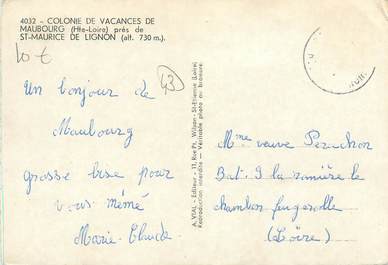 4032 - COLONIE DE VACANCES DE
MAUBOURG (Hte-Loire) près de
ST-MAURICE DE LIGNON (alt. 730 m.)
10 €
43
Un bonjour de
Maubourg
grosse bise pour
vous mémé
Marie-Claude
A. VIAL - Editeur - 71, Rue Pt. Wilson - St-Etienne (Loire)
Reproduction interdite — Véritable photo au bromure.
Mme veuve Perachon
Bat. I la romière le
chambon feugerolle
(Loire)